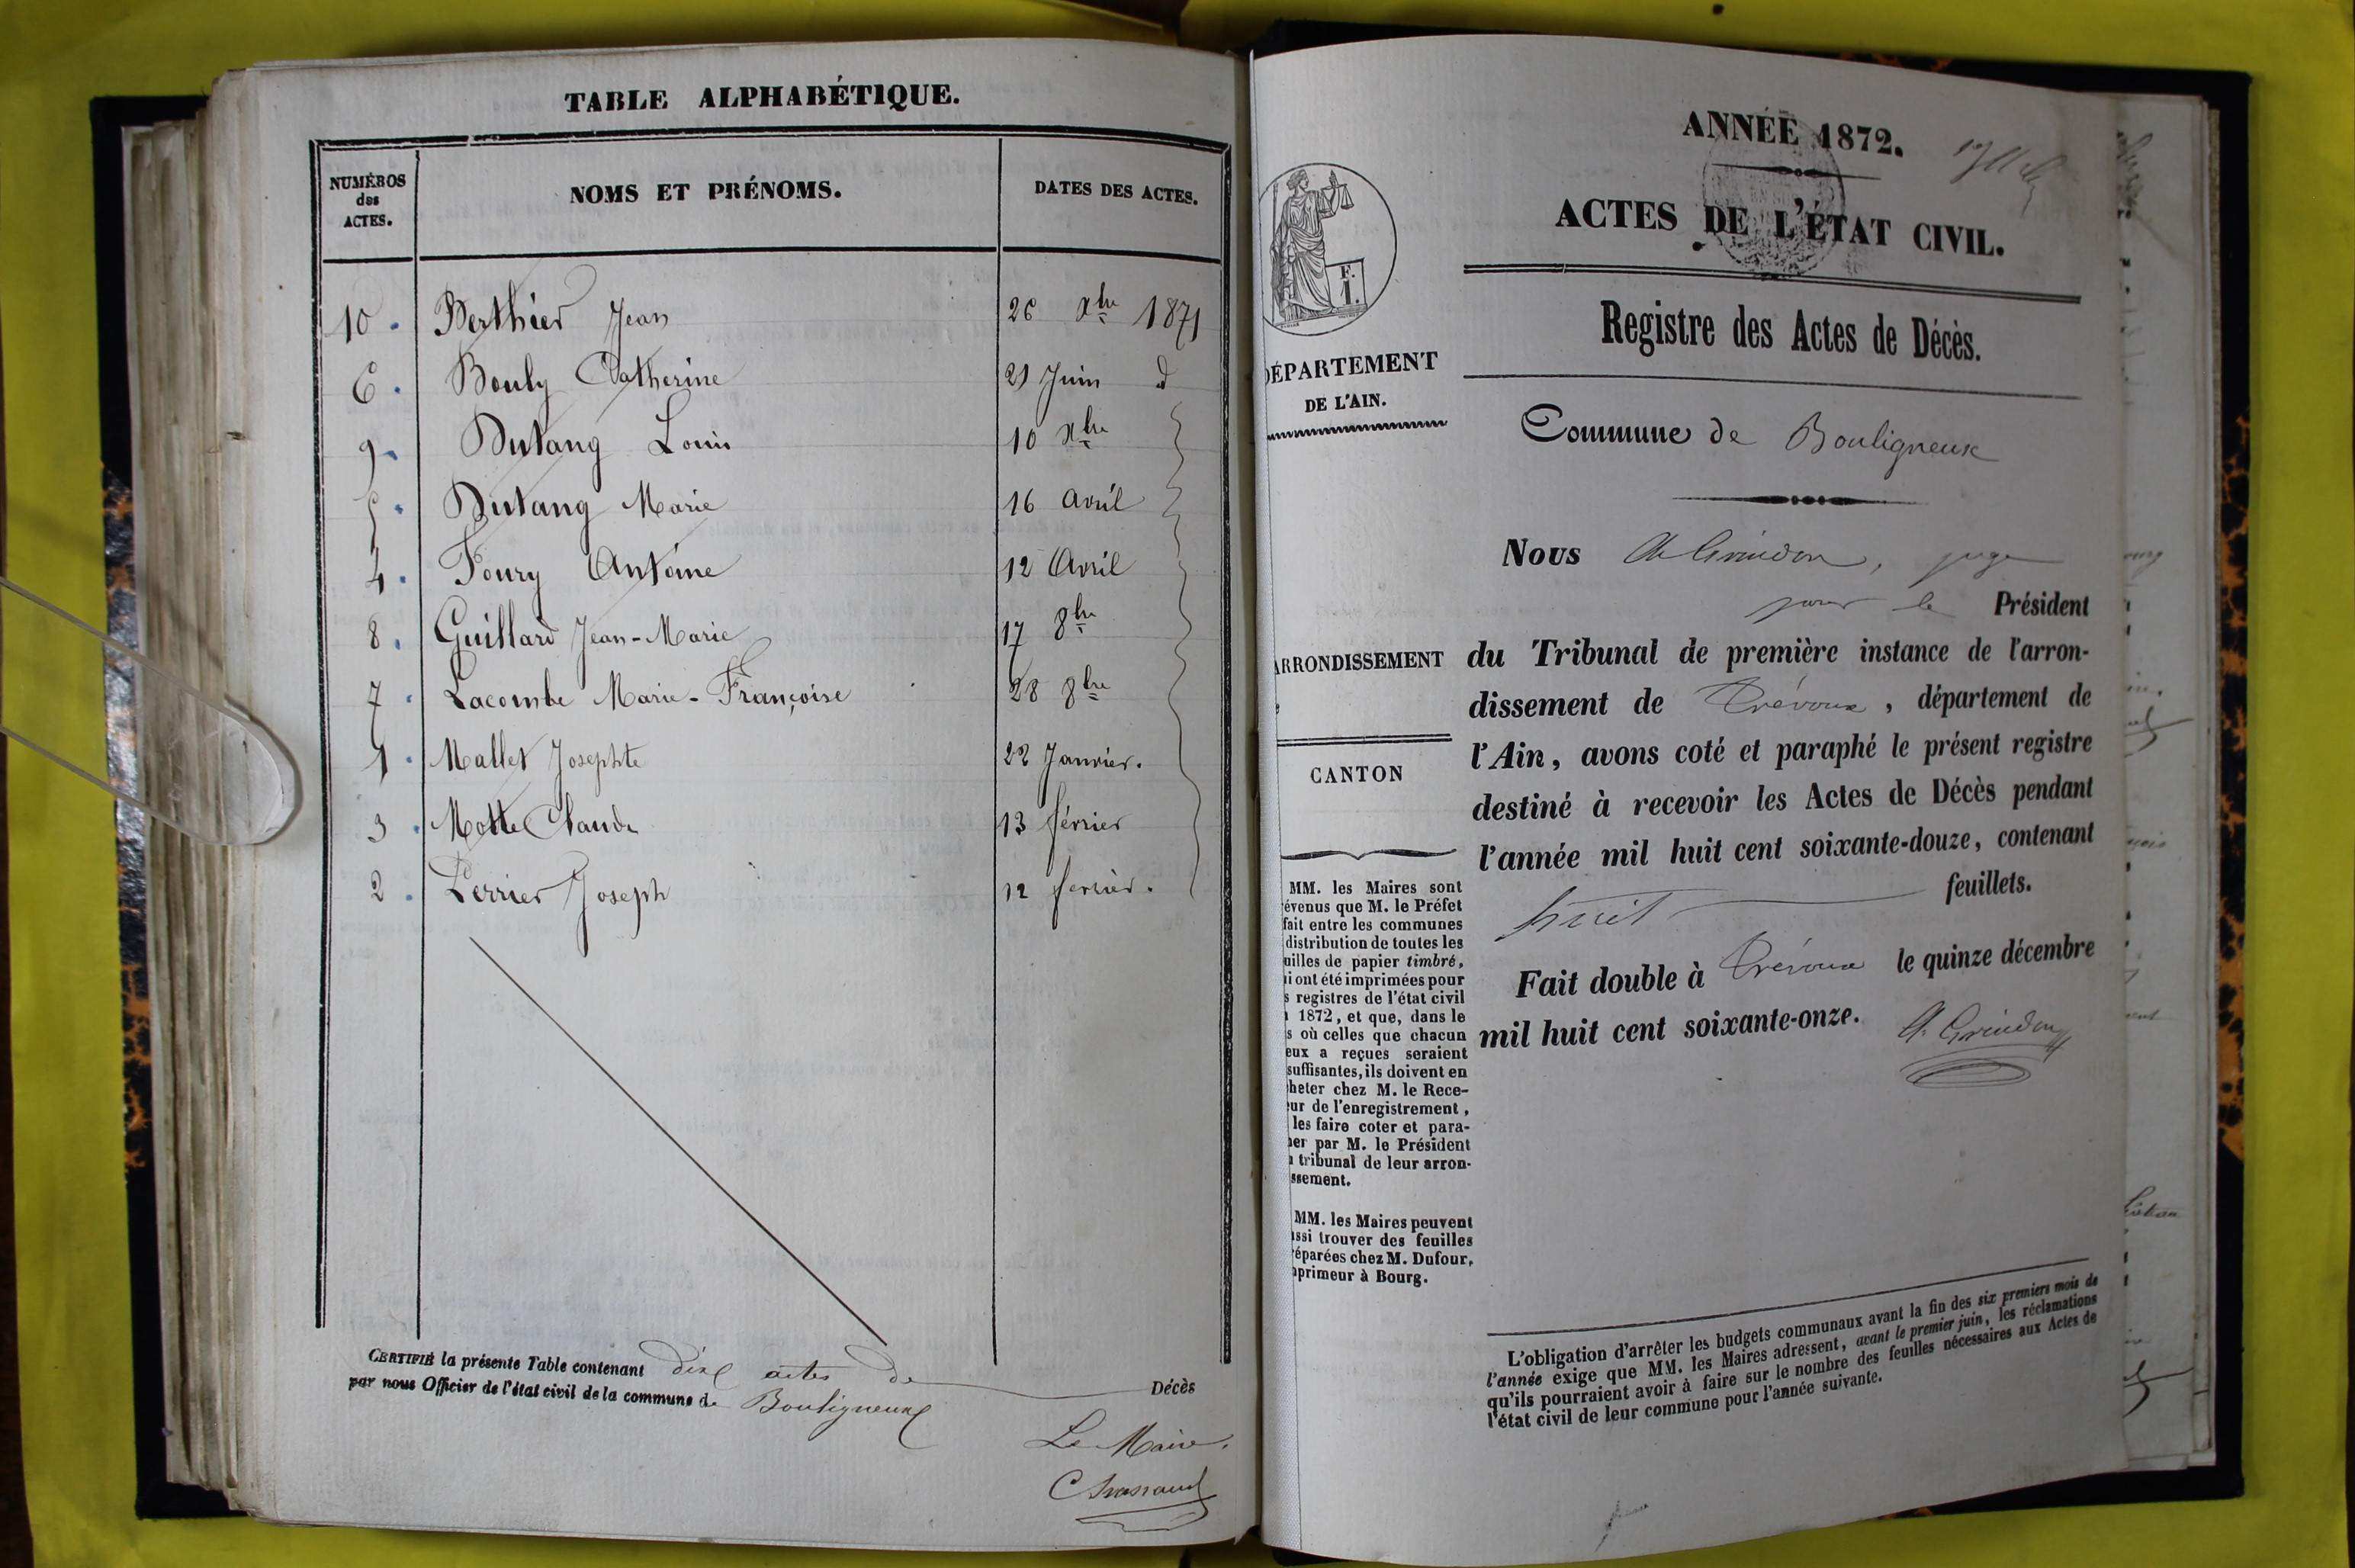 TABLE ALPHABÉTIQUE.
NUMÉROS des ACTES. NOMS ET PRÉNOMS. DATES DES ACTES.
10. Berthier Jean 26 Xbre 1871
6. Bouly Catherine 21 Juin d
9. Dutang Louis 10 Xbre
5. Dutang Marie 16 Avril
4. Foury Antoine 12 Avril
8. Guillard Jean-Marie 17 8bre
7. Lacombe Marie-Françoise 28 8bre
1. Mallet Josephte 22 Janvier.
3. Motte Claude 13 février
2. Perrier Joseph 12 fevrier.
CERTIFIÉ la présente Table contenant dix actes de Décès
par nous Officier de l'état civil de la commune de Bouligneux
Le Maire.
ANNÉE 1872.
ACTES DE L'ÉTAT CIVIL.
Registre des Actes de Décès.
F.
I.
DÉPARTEMENT
DE L'AIN.
ARRONDISSEMENT
CANTON
MM. les Maires sont
évenus que M. le Préfet
fait entre les communes
distribution de toutes les
uilles de papier timbré,
i ont été imprimées pour
s registres de l'état civil
1872, et que, dans le
s où celles que chacun
eux a reçues seraient
suffisantes, ils doivent en
heter chez M. le Rece-
ur de l'enregistrement,
les faire coter et para-
her par M. le Président
tribunal de leur arron-
ssement.
MM. les Maires peuvent
ssi trouver des feuilles
éparées chez M. Dufour,
primeur à Bourg.
Commune de Bouligneux
Nous A. Grindon, juge
pour le Président
du Tribunal de première instance de l'arron-
dissement de Trévoux, département de
l'Ain, avons coté et paraphé le présent registre
destiné à recevoir les Actes de Décès pendant
l'année mil huit cent soixante-douze, contenant
huit feuillets.
Fait double à Trévoux le quinze décembre
mil huit cent soixante-onze. A. Grindon
L'obligation d'arrêter les budgets communaux avant la fin des six premiers mois de
l'année exige que MM. les Maires adressent, avant le premier juin, les réclamations
qu'ils pourraient avoir à faire sur le nombre des feuilles nécessaires aux Actes de
l'état civil de leur commune pour l'année suivante.